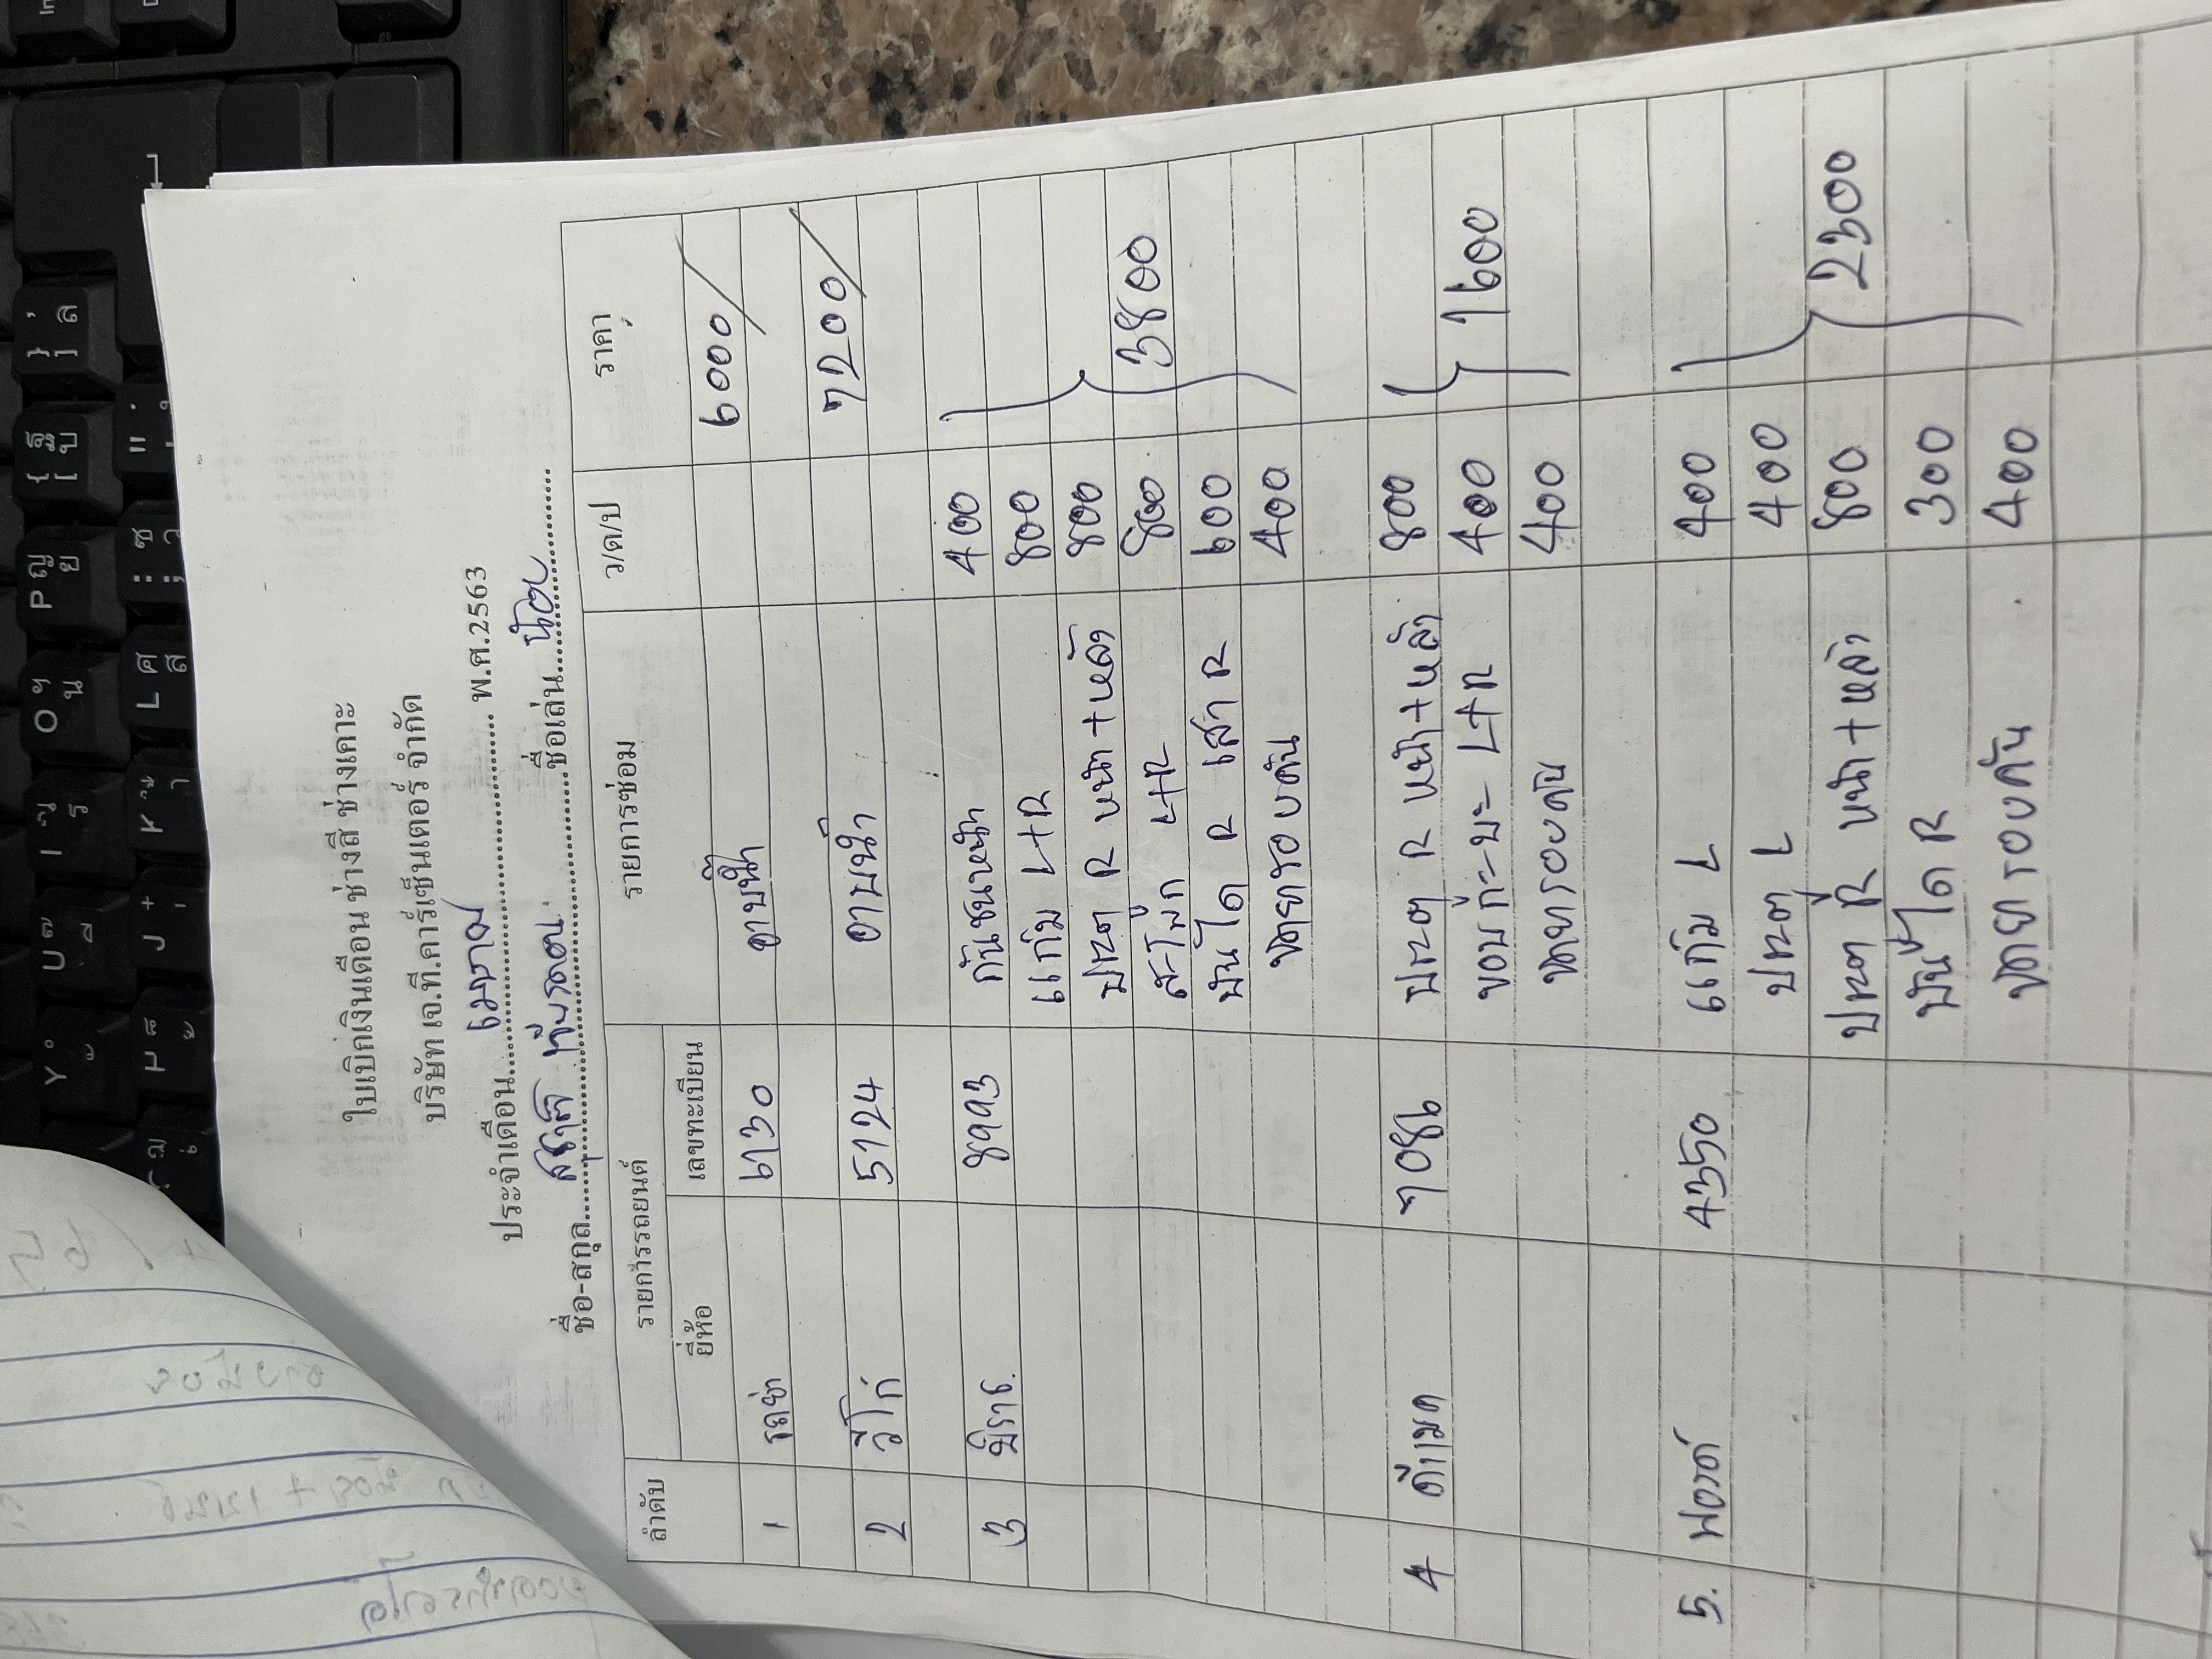 ใบเบิกเงินเดือน ช่างสี ช่างเคาะ
บริษัท เจ.ที.คาร์เซ็นเตอร์ จำกัด
ประจำเดือน เมษายน พ.ศ.2563
ชื่อ-สกุล ชื่อเล่น น้อย
ลำดับ รายการรถยนต์ รายการซ่อม ว/ด/ป ราคา
ยี่ห้อ เลขทะเบียน
1 6130 อาบน้ำ 6000/
2 วีโก้ 5124 อาบน้ำ 7200/
3 8993 กันชนหน้า 400
แก้ม L+R 800
ประตู R หน้า+หลัง 800
สะโพก L+R 800 3800
บันได R เสา R 600
หยอดรอบคัน 400
4 ดีแมค 7086 ประตู R หน้า+หลัง 800
ขอบกะบะ L+R 400 1600
รอบคัน 400
5. ฟอร์ด 4350 แก้ม L 400
ประตู L 400
ประตู R หน้า+หลัง 800 2300
บันได R 300
รอบคัน 400